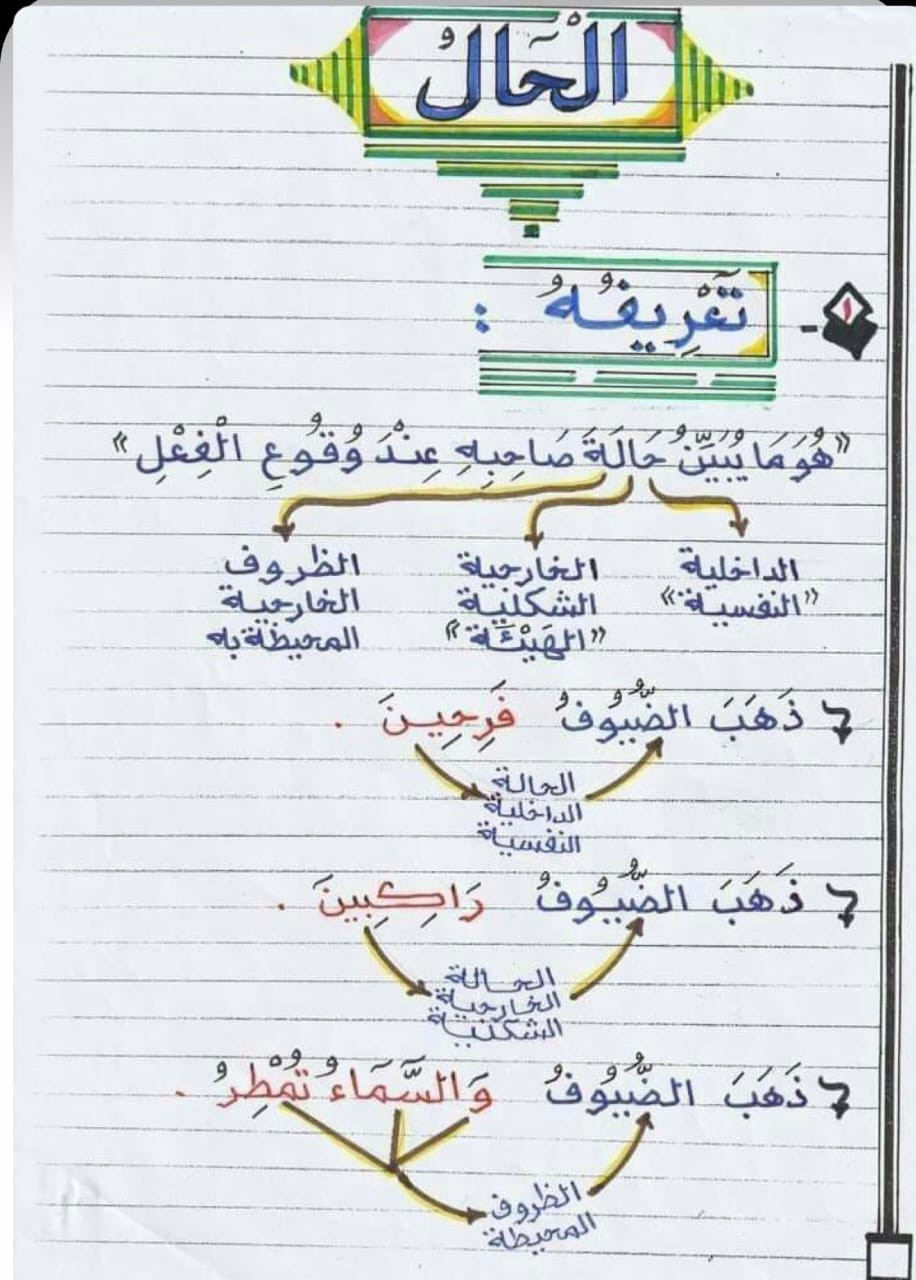 الْحَالُ
١ -
تَعْرِيفُهُ :
«هُوَ مَا يُبَيِّنُ حَالَةَ صَاحِبِهِ عِنْدَ وُقُوعِ الْفِعْلِ»
الداخلية
«النفسية»
الخارجية
الشكلية
«الهَيْئَة»
الظروف
الخارجية
المحيطة به
ذَهَبَ الضُّيُوفُ فَرِحِينَ .
الحالة
الداخلية
النفسية
ذَهَبَ الضُّيُوفُ رَاكِبِينَ .
الحالة
الخارجية
الشكلية
ذَهَبَ الضُّيُوفُ وَالسَّمَاءُ تُمْطِرُ .
الظروف
المحيطة